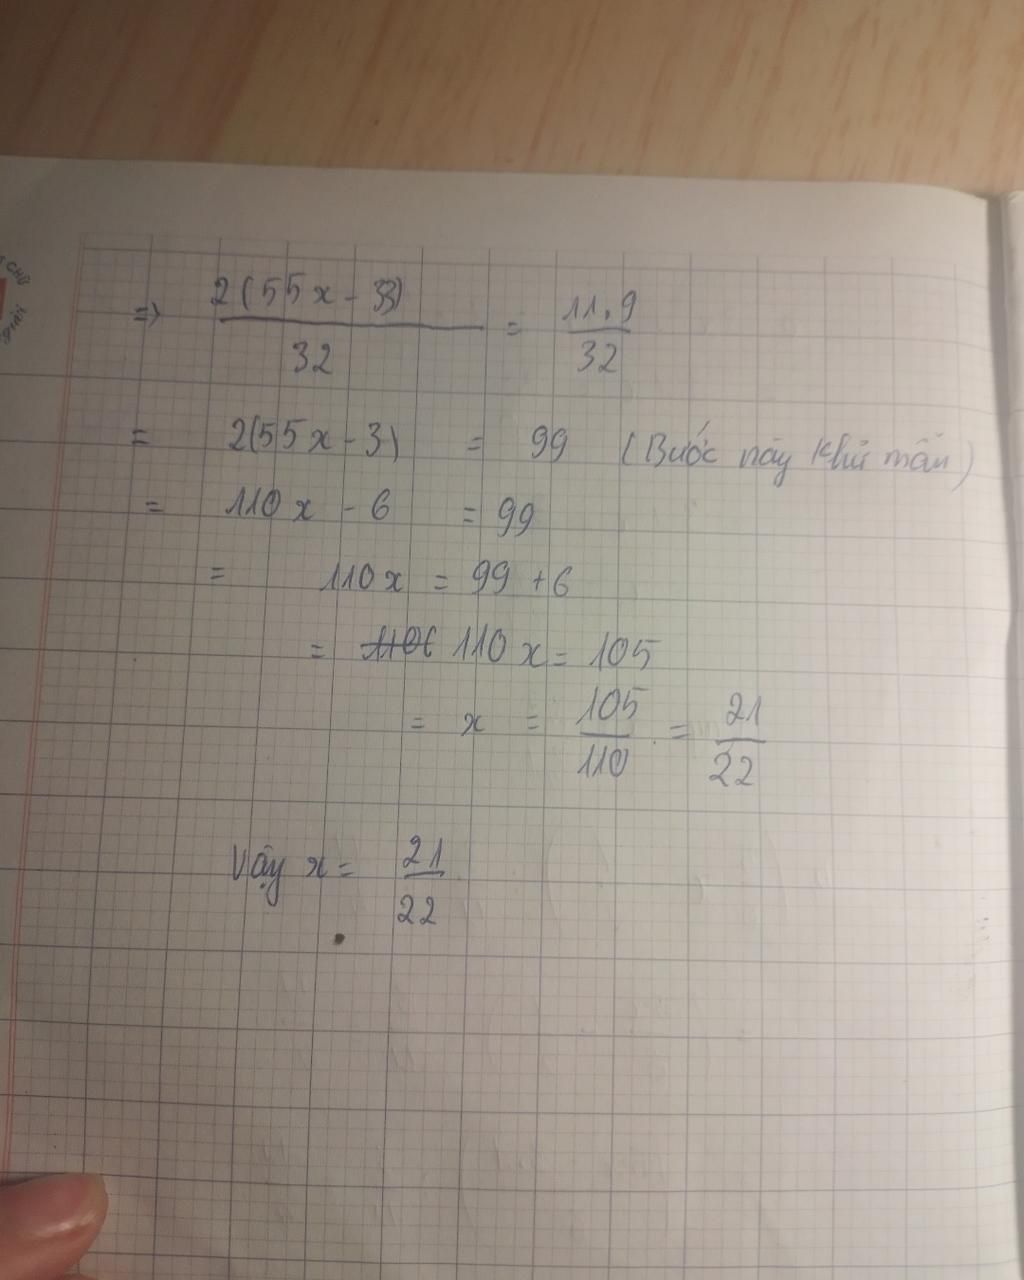 ⇒ 2(55x - 33) / 32 = 11.9 / 32
= 2(55x - 3) = 99 (Bước này khử mẫu)
= 110x - 6 = 99
= 110x = 99 + 6
= 110x = 105
= x = 105/110 = 21/22
Vậy x = 21/22